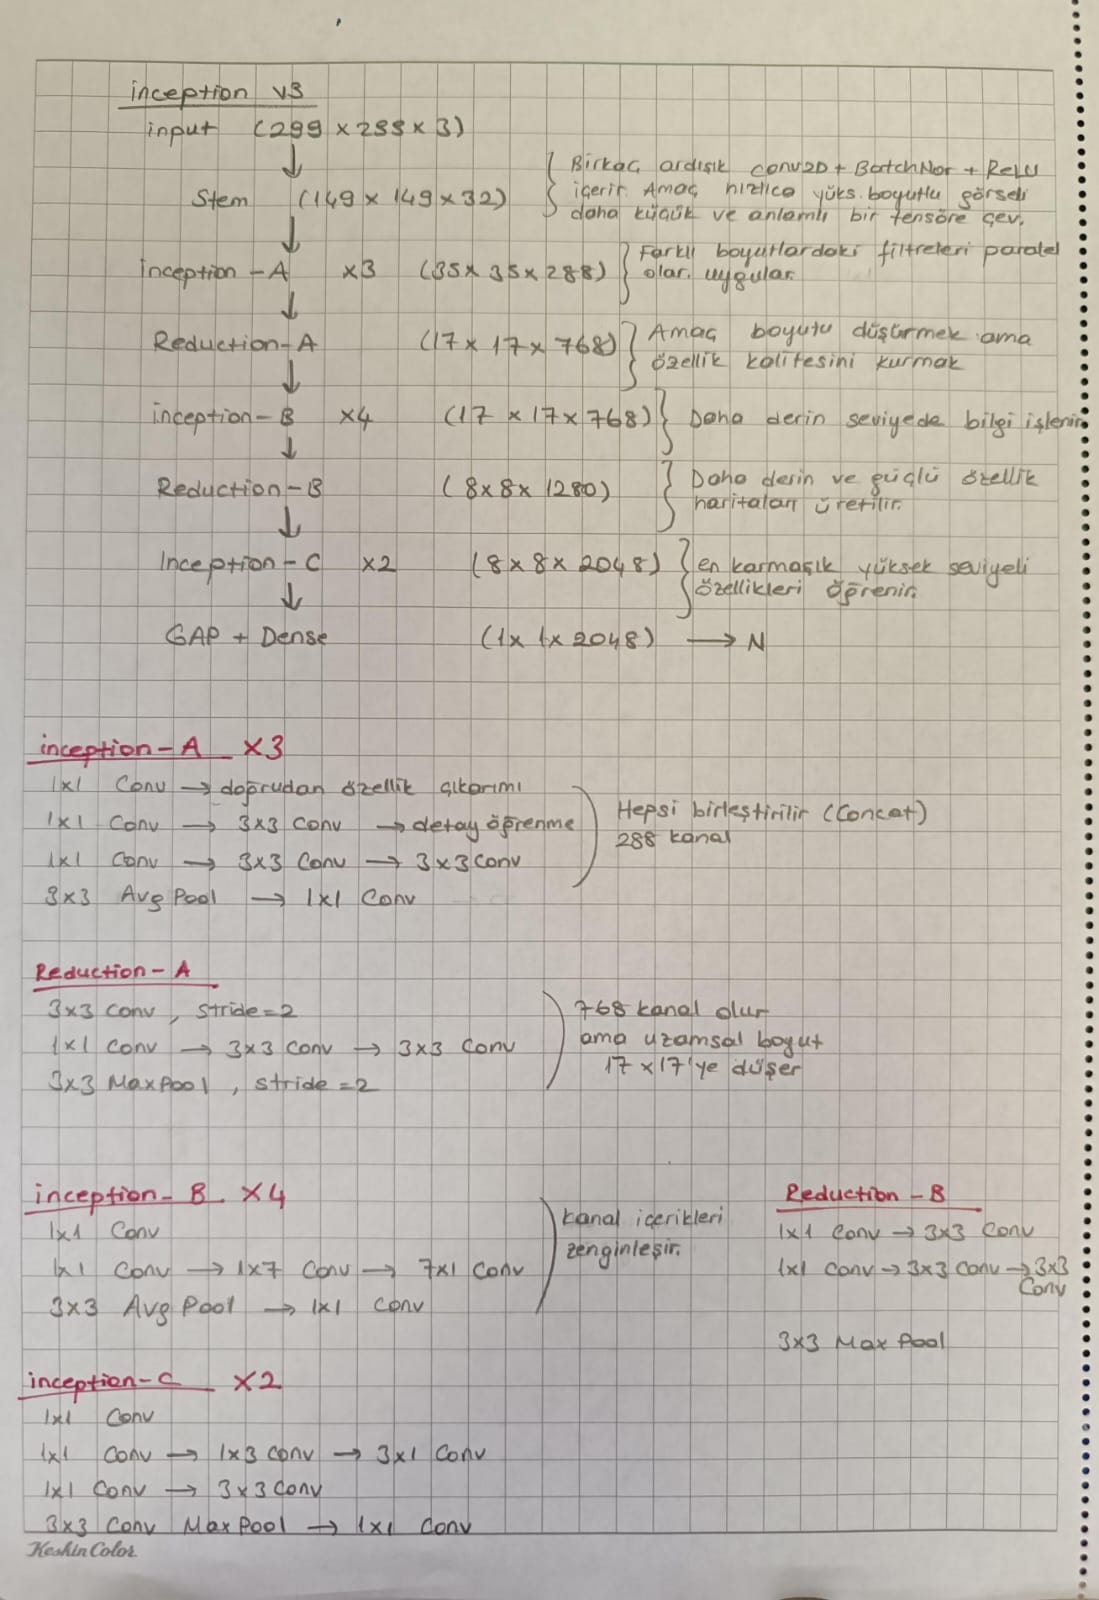 inception v3
input (299 x 299 x 3)
Stem (149 x 149 x 32)
Birkaç ardışık conv2D + BatchNor + ReLU
içerir. Amaç hızlıca yüks. boyutlu görseli
daha küçük ve anlamlı bir tensöre çev.
inception - A x3 (35 x 35 x 288)
Farklı boyutlardaki filtreleri paralel
olar. uygular.
Reduction - A (17 x 17 x 768)
Amaç boyutu düşürmek ama
özellik kalitesini kurmak
inception - B x4 (17 x 17 x 768) Daha derin seviyede bilgi işlenir.
Reduction - B (8x8x 1280)
Daha derin ve güçlü özellik
haritaları üretilir.
Inception - C x2 (8 x 8 x 2048)
en karmaşık yüksek seviyeli
özellikleri öğrenir.
GAP + Dense (1x 1x 2048) → N
inception - A x3
1x1 Conv → doğrudan özellik çıkarımı
1x1 Conv → 3x3 Conv → detay öğrenme
1x1 Conv → 3x3 Conv → 3x3 Conv
3x3 Avg Pool → 1x1 Conv
Hepsi birleştirilir (Concat)
288 kanal
Reduction - A
3x3 Conv, stride=2
1x1 Conv → 3x3 Conv → 3x3 Conv
3x3 MaxPool, stride=2
768 kanal olur
ama uzamsal boyut
17 x 17'ye düşer
inception - B x4
1x1 Conv
1x1 Conv → 1x7 Conv → 7x1 Conv
3x3 Avg Pool → 1x1 Conv
kanal içerikleri
zenginleşir.
Reduction - B
1x1 Conv → 3x3 Conv
1x1 Conv → 3x3 Conv → 3x3
Conv
3x3 Max Pool
inception - C x2
1x1 Conv
1x1 Conv → 1x3 Conv → 3x1 Conv
1x1 Conv → 3x3 Conv
3x3 Conv MaxPool → 1x1 Conv
KeskinColor